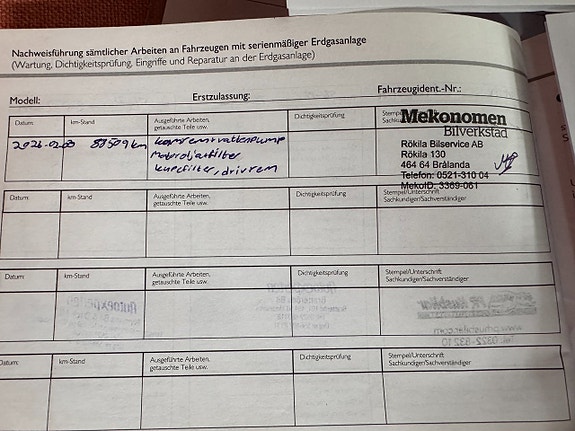 Nachweisführung sämtlicher Arbeiten an Fahrzeugen mit serienmäßiger Erdgasanlage
(Wartung, Dichtigkeitsprüfung, Eingriffe und Reparatur an der Erdgasanlage)
Modell: Erstzulassung: Fahrzeugident.-Nr.:
Datum: km-Stand Ausgeführte Arbeiten, getauschte Teile usw. Dichtigkeitsprüfung
Mekonomen
Bilverkstad
Rökila Bilservice AB
Rökila 130
464 64 Brålanda
Telefon: 0521-310 04
MekoID: 3369-061
kamrem+vattenpump
Motorolja+filter
drivrem
Datum: km-Stand Ausgeführte Arbeiten, getauschte Teile usw. Dichtigkeitsprüfung Stempel/Unterschrift
Sachkundigen/Sachverständiger
Datum: km-Stand Ausgeführte Arbeiten, getauschte Teile usw. Dichtigkeitsprüfung Stempel/Unterschrift
Sachkundigen/Sachverständiger
Datum: km-Stand Ausgeführte Arbeiten, getauschte Teile usw. Dichtigkeitsprüfung Stempel/Unterschrift
Sachkundigen/Sachverständiger